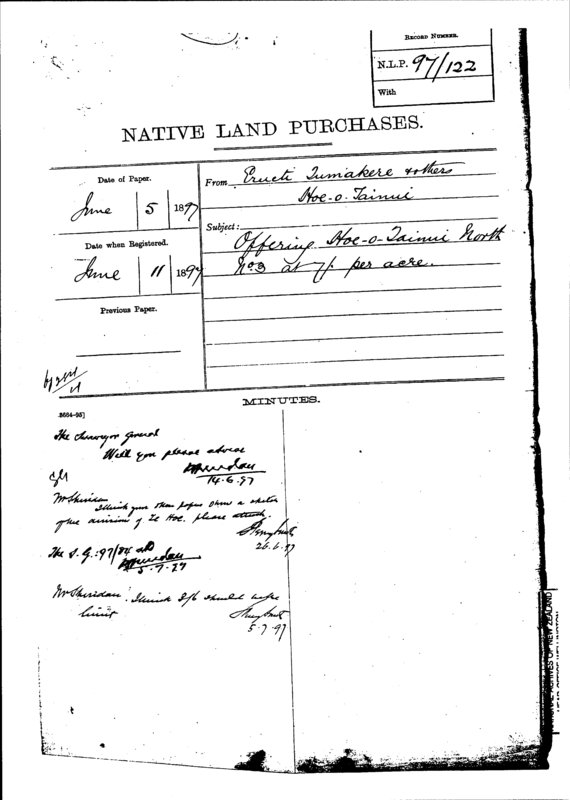 RECORD NUMBER.
N.L.P. 97/122
With
NATIVE LAND PURCHASES.
Date of Paper.
June 5 1897
Date when Registered.
June 11 1897
Previous Paper.
From Erueti Tumakere & others
Hoe-o-Tainui
Subject:
Offering Hoe-o-Tainui North
No 3 at 7/- per acre.
MINUTES.
3664-95]
The Surveyor General
Will you please advise
14.6.97
Mr Sheridan
I think your other papers show a sketch
of the division of Te Hoe, please attach.
26.6.97
The S.G.: 97/84
5.7.97
Mr Sheridan I think 3/6 should be the
limit
5.7.97
NATIONAL ARCHIVES OF NEW ZEALAND
HEAD OFFICE WELLINGTON